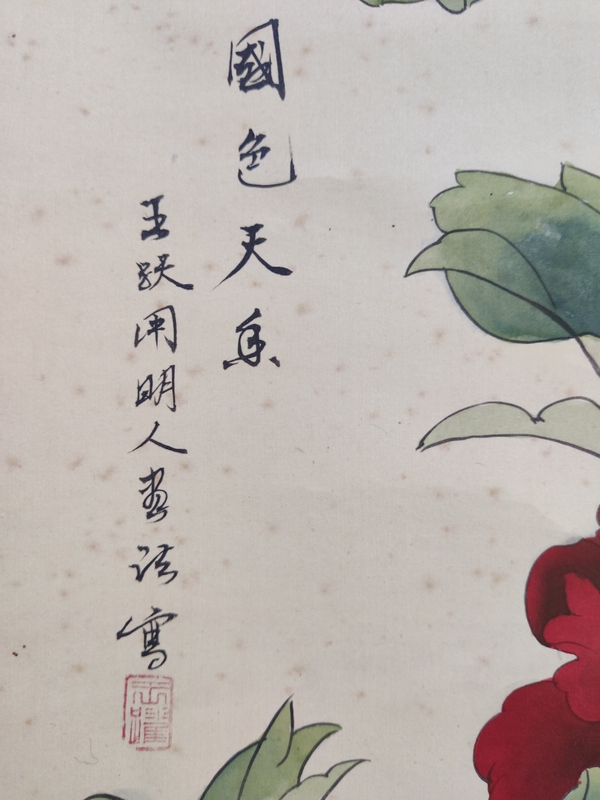 國色天香
王跃用明人画法寫